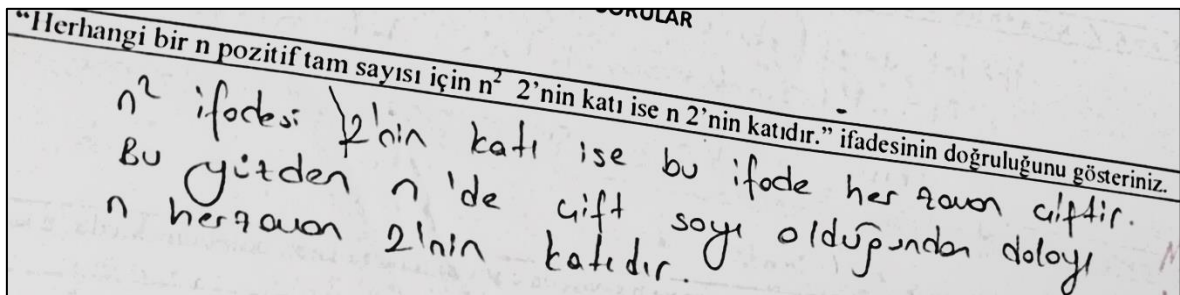 SORULAR
“Herhangi bir n pozitif tam sayısı için n² 2’nin katı ise n 2’nin katıdır.” ifadesinin doğruluğunu gösteriniz.
n² ifadesi 2'nin katı ise bu ifade her zaman çiftir.
Bu yüzden n 'de çift sayı olduğundan dolayı
n her zaman 2'nin katıdır.